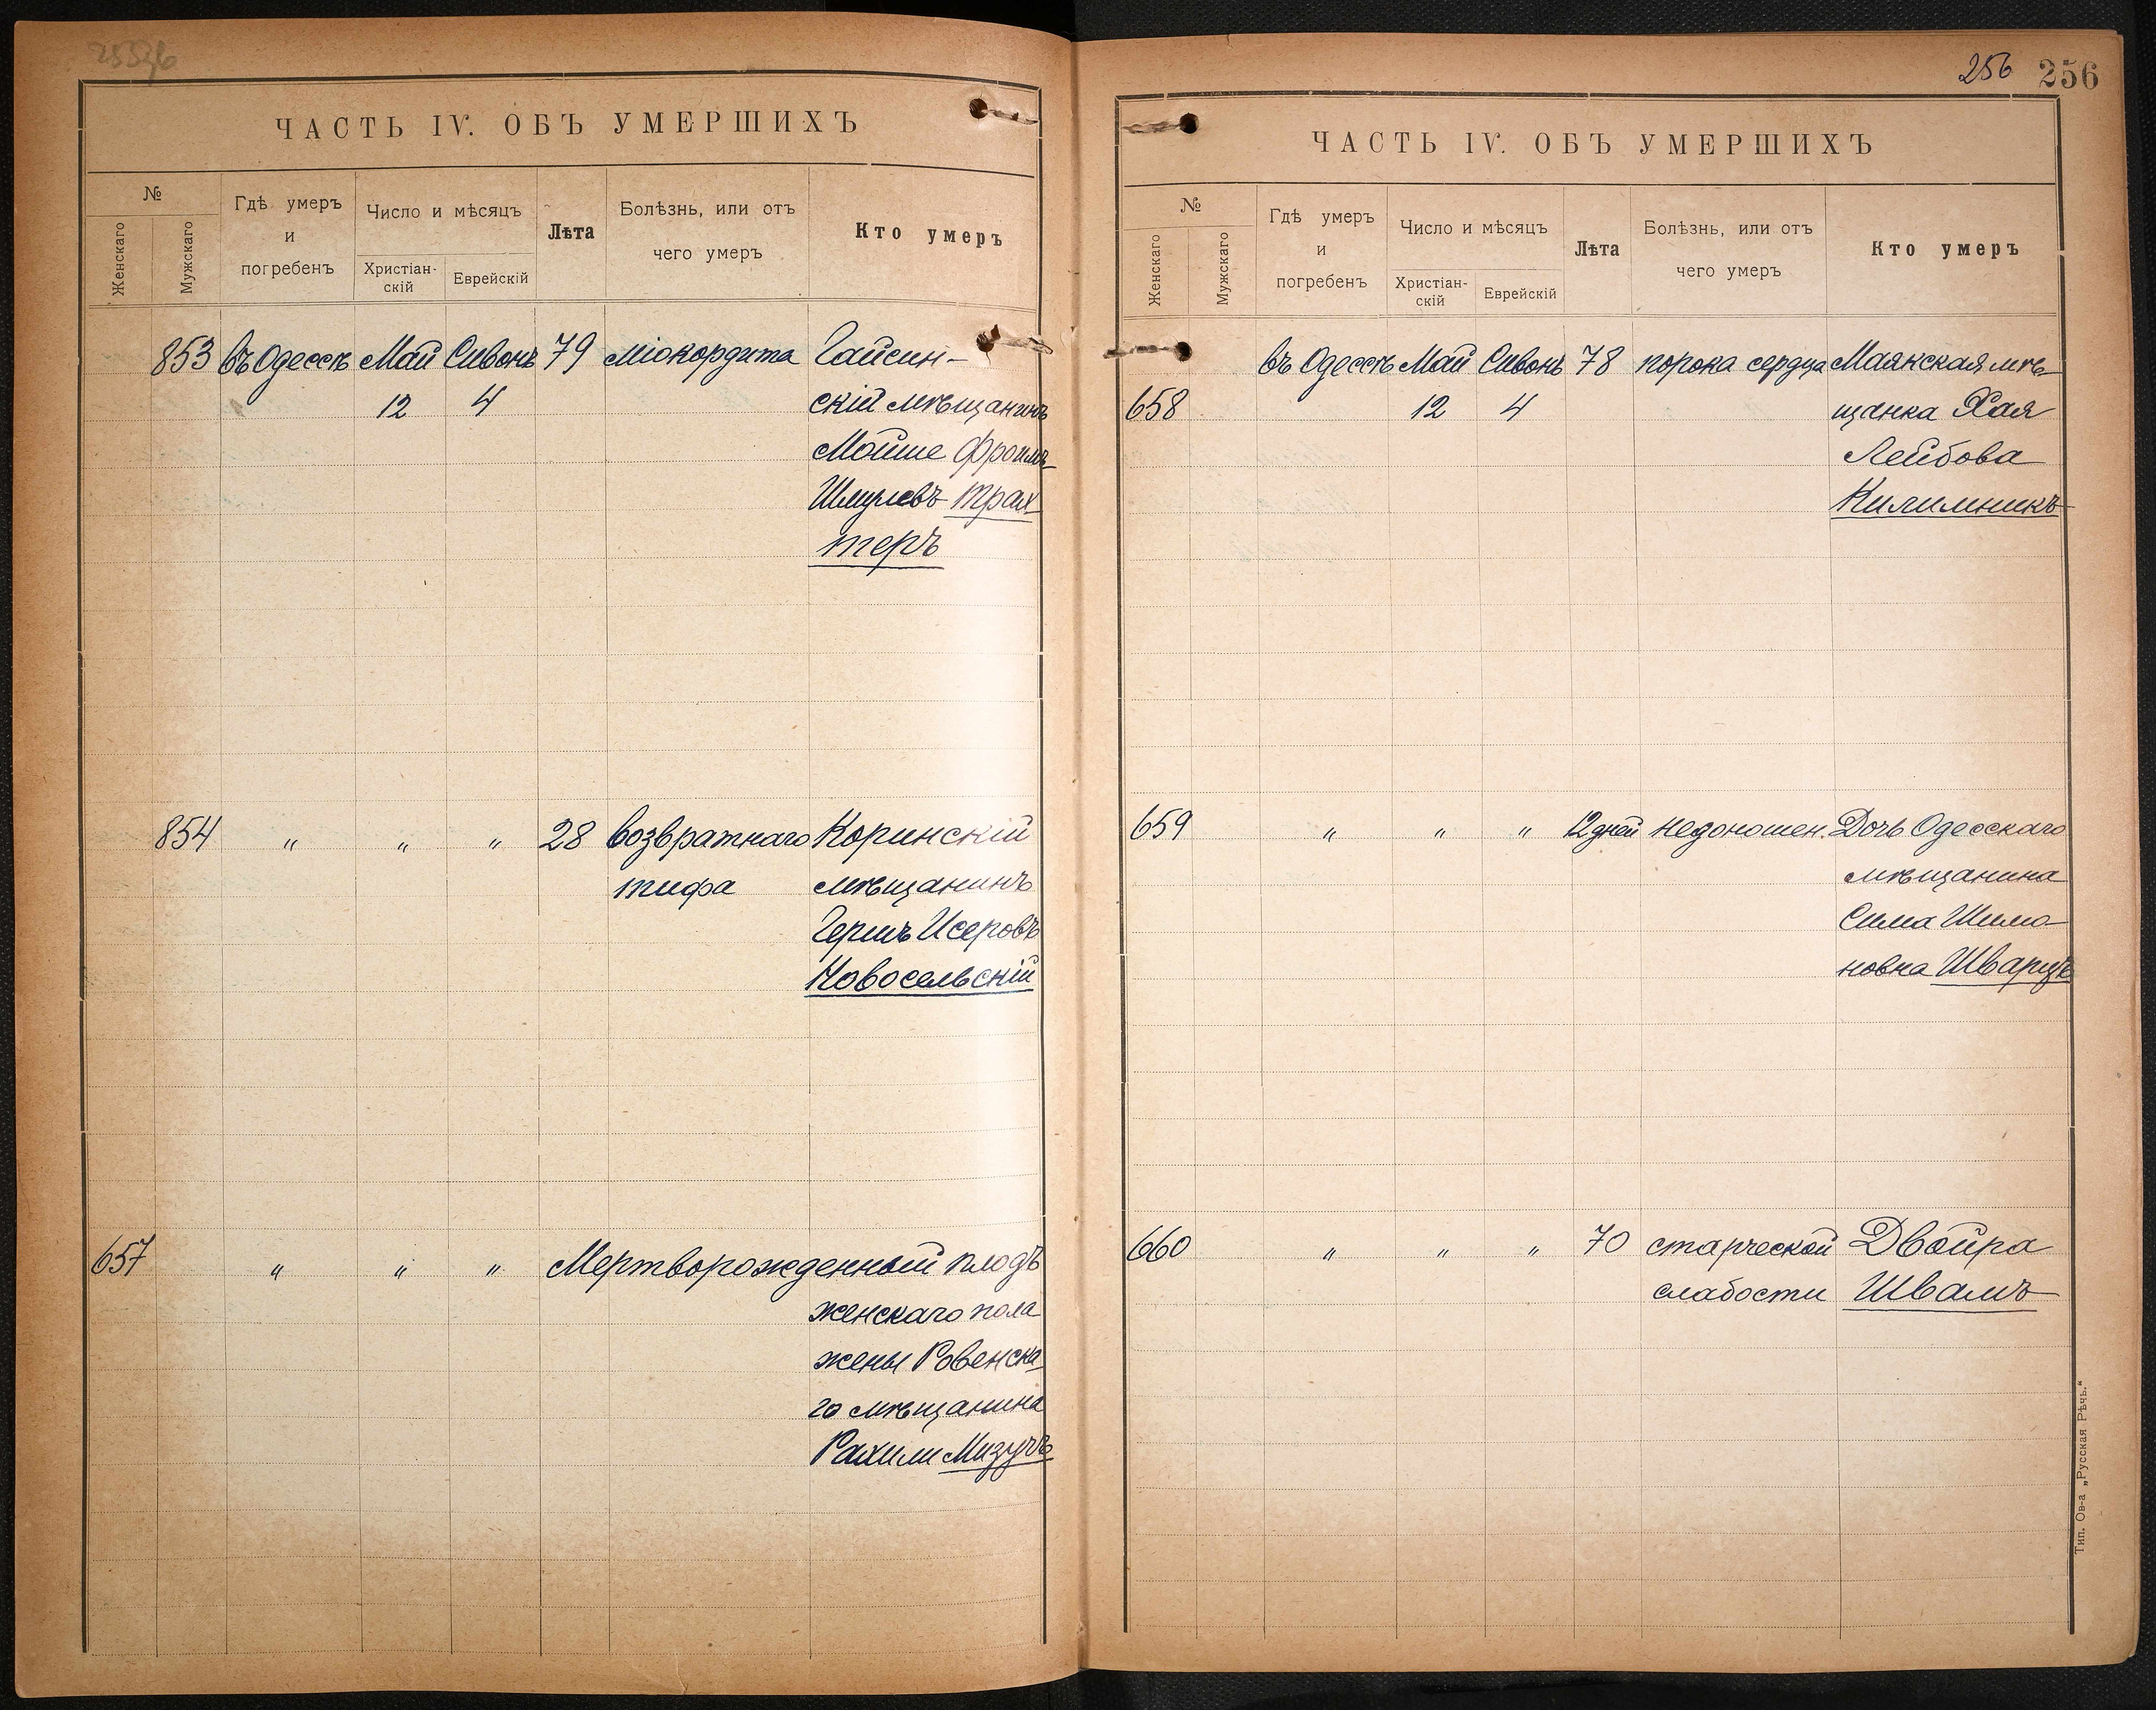 ЧАСТЬ IV. ОБЪ УМЕРШИХЪ
№
Женскаго
Мужскаго
Гдѣ умеръ
и
погребенъ
Число и мѣсяцъ
Христіан-
скій
Еврейскій
Лѣта
Болѣзнь, или отъ
чего умеръ
Кто умеръ
853 въ Одессѣ Май Сивонъ 79 міокордита Гайсин-
12 4 скій мѣщанинъ
Мойше Фроимъ
Шмулевъ Трах
теръ
854 " " " 28 возвратнаго Коринскій
тифа мѣщанинъ
Гершъ Исеровъ
Новосельскій
657 " " " Мертворожденный плодъ
женскаго пола
жены Ровенска
го мѣщанина
Рахили Мизучъ
256 256
ЧАСТЬ IV. ОБЪ УМЕРШИХЪ
№
Женскаго
Мужскаго
Гдѣ умеръ
и
погребенъ
Число и мѣсяцъ
Христіан-
скій
Еврейскій
Лѣта
Болѣзнь, или отъ
чего умеръ
Кто умеръ
въ Одессѣ Май Сивонъ 78 порока сердца Маянская мѣ-
658 12 4 щанка Хая
Лейбова
Килимникъ
659 " " " 12 дней недоношен. Дочь Одесскаго
мѣщанина
Сима Шимо
новна Шварцъ
660 " " " 70 старческой Двойра
слабости Швамъ
Тип. Ов-а „Русская Рѣчь."